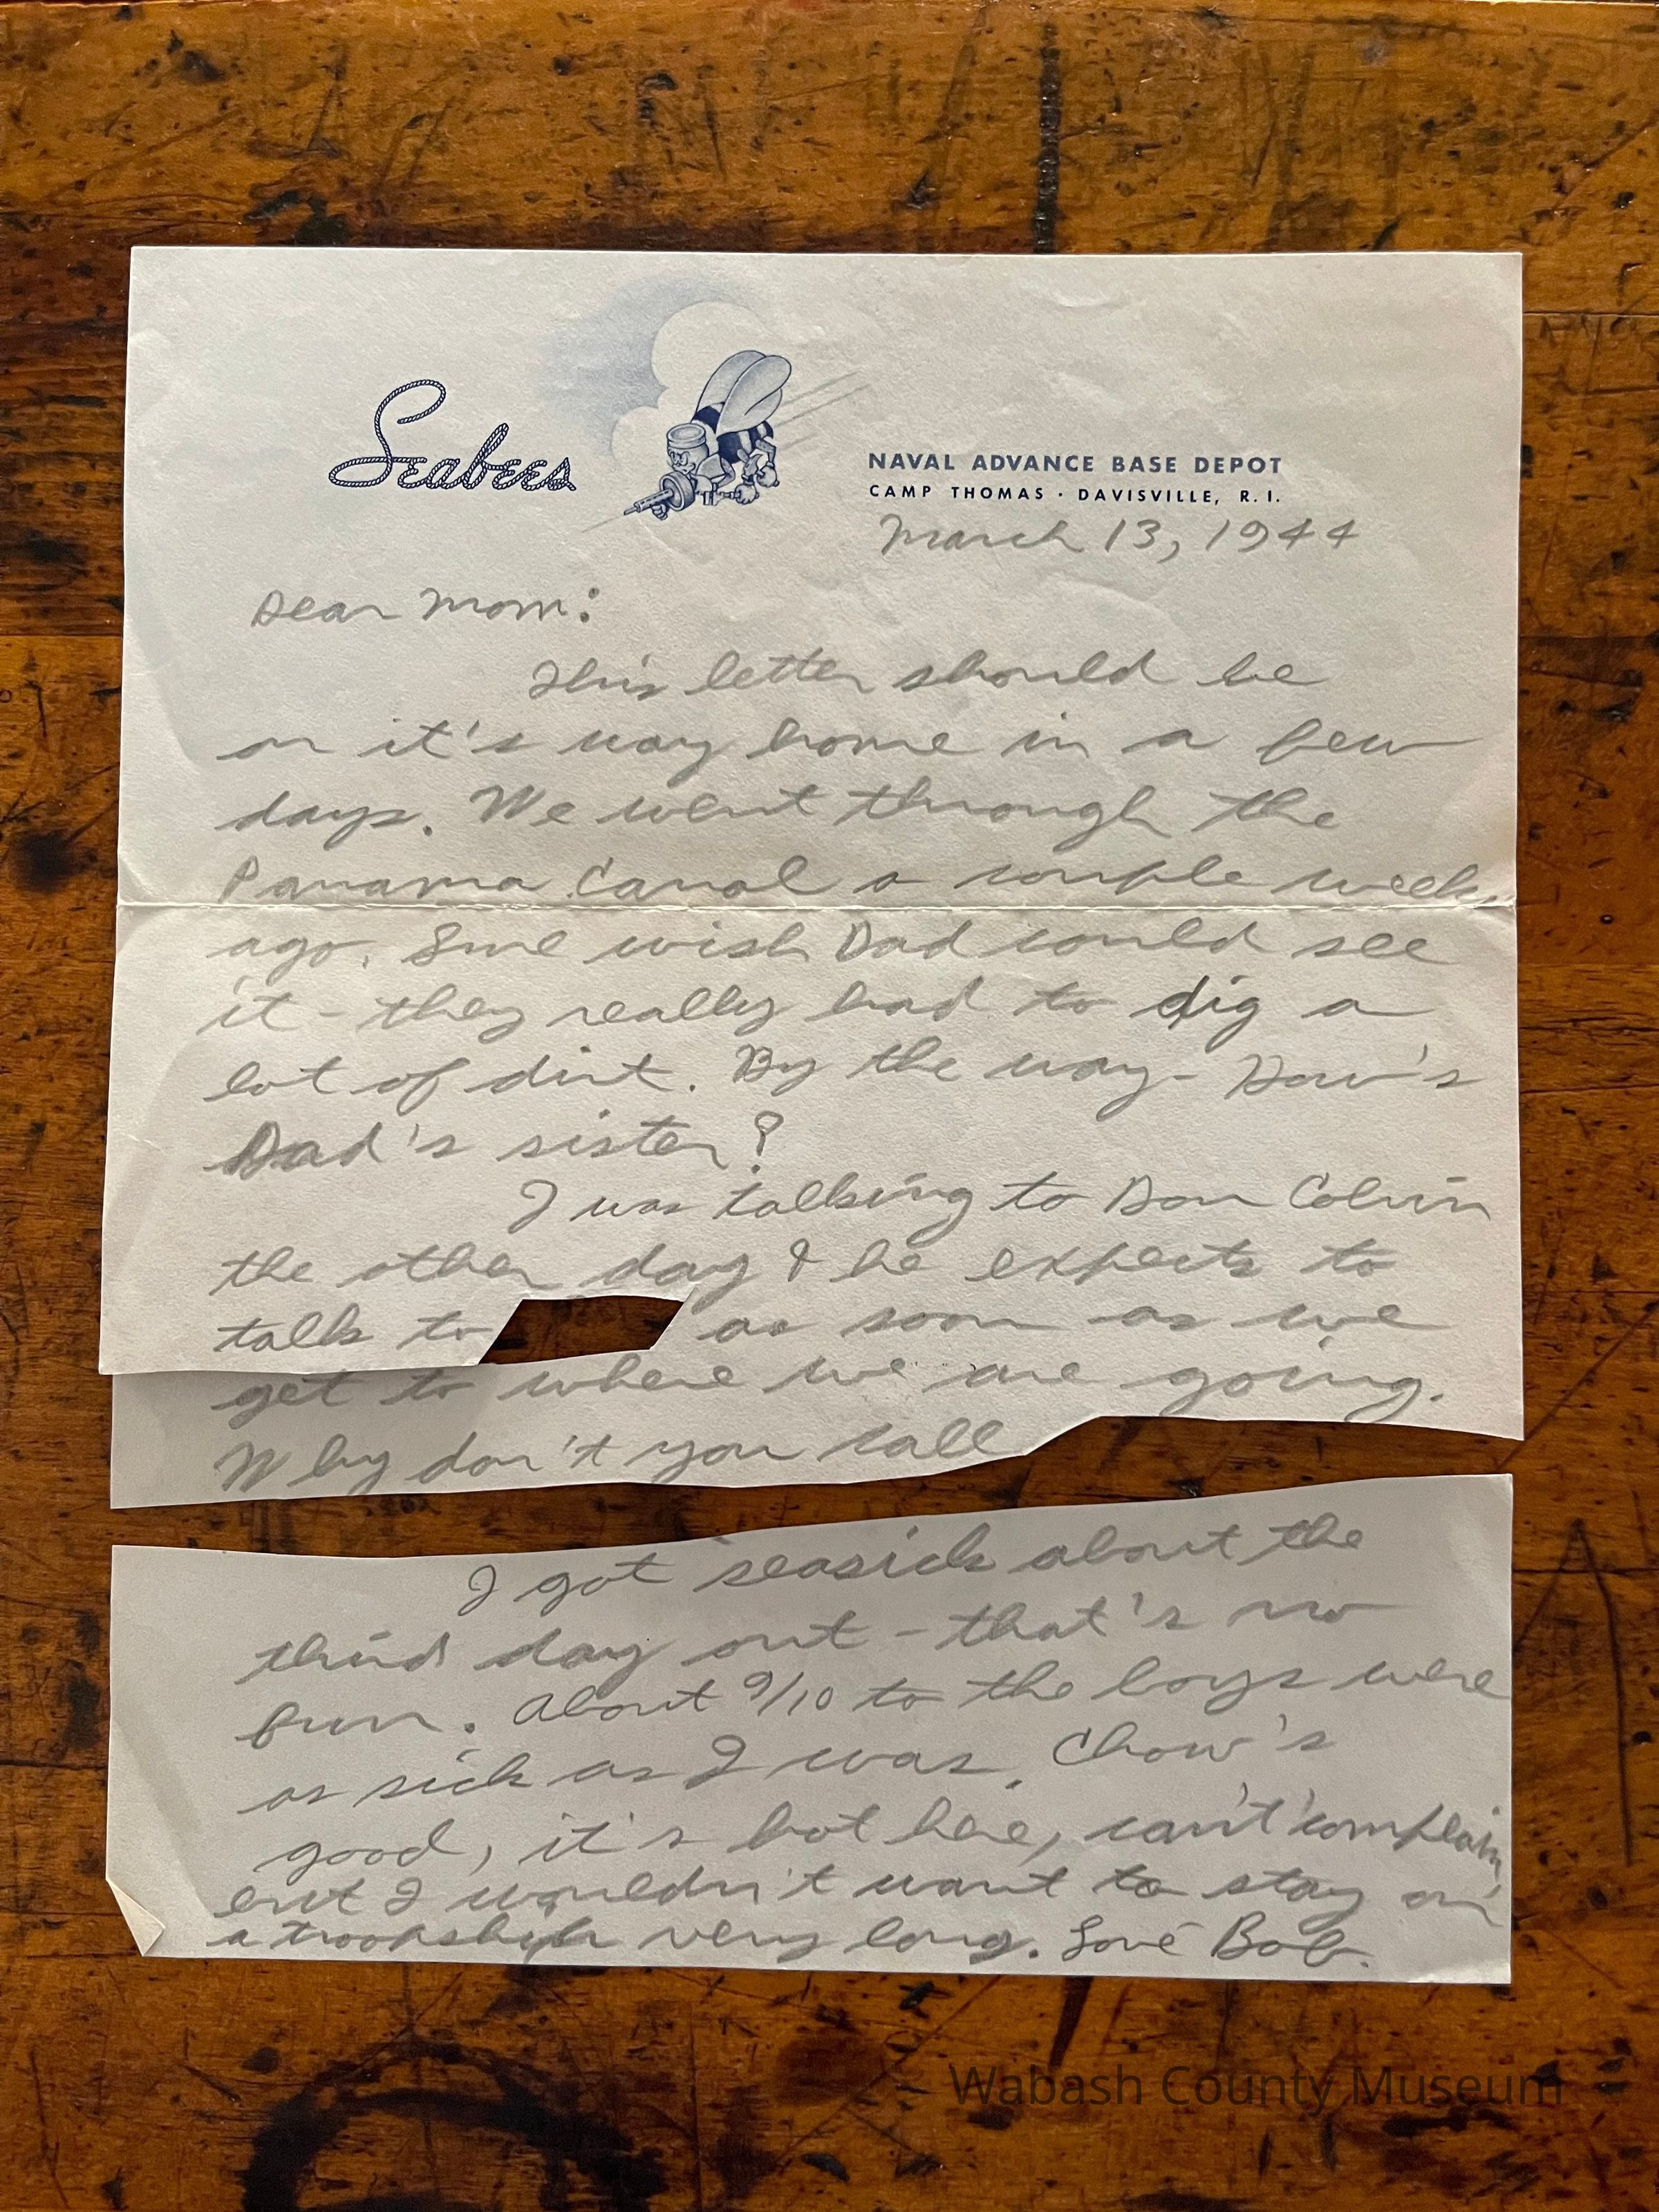 Seabees
NAVAL ADVANCE BASE DEPOT
CAMP THOMAS · DAVISVILLE, R. I.
March 13, 1944
Dear Mom:
This letter should be
on it's way home in a few
days. We went through the
Panama Canal a couple weeks
ago. Sure wish Dad could see
it - they really had to dig a
lot of dirt. By the way - How's
Dad's sister?
I was talking to Don Colvin
the other day & he expects to
talk to as soon as we
get to where we are going.
Why don't you call
I got seasick about the
third day out - that's no
fun. About 9/10 to the boys were
as sick as I was. Chow's
good, it's hot here, can't complain
but I wouldn't want to stay on
a troopship very long. Love Bob.
Wabash County Museum